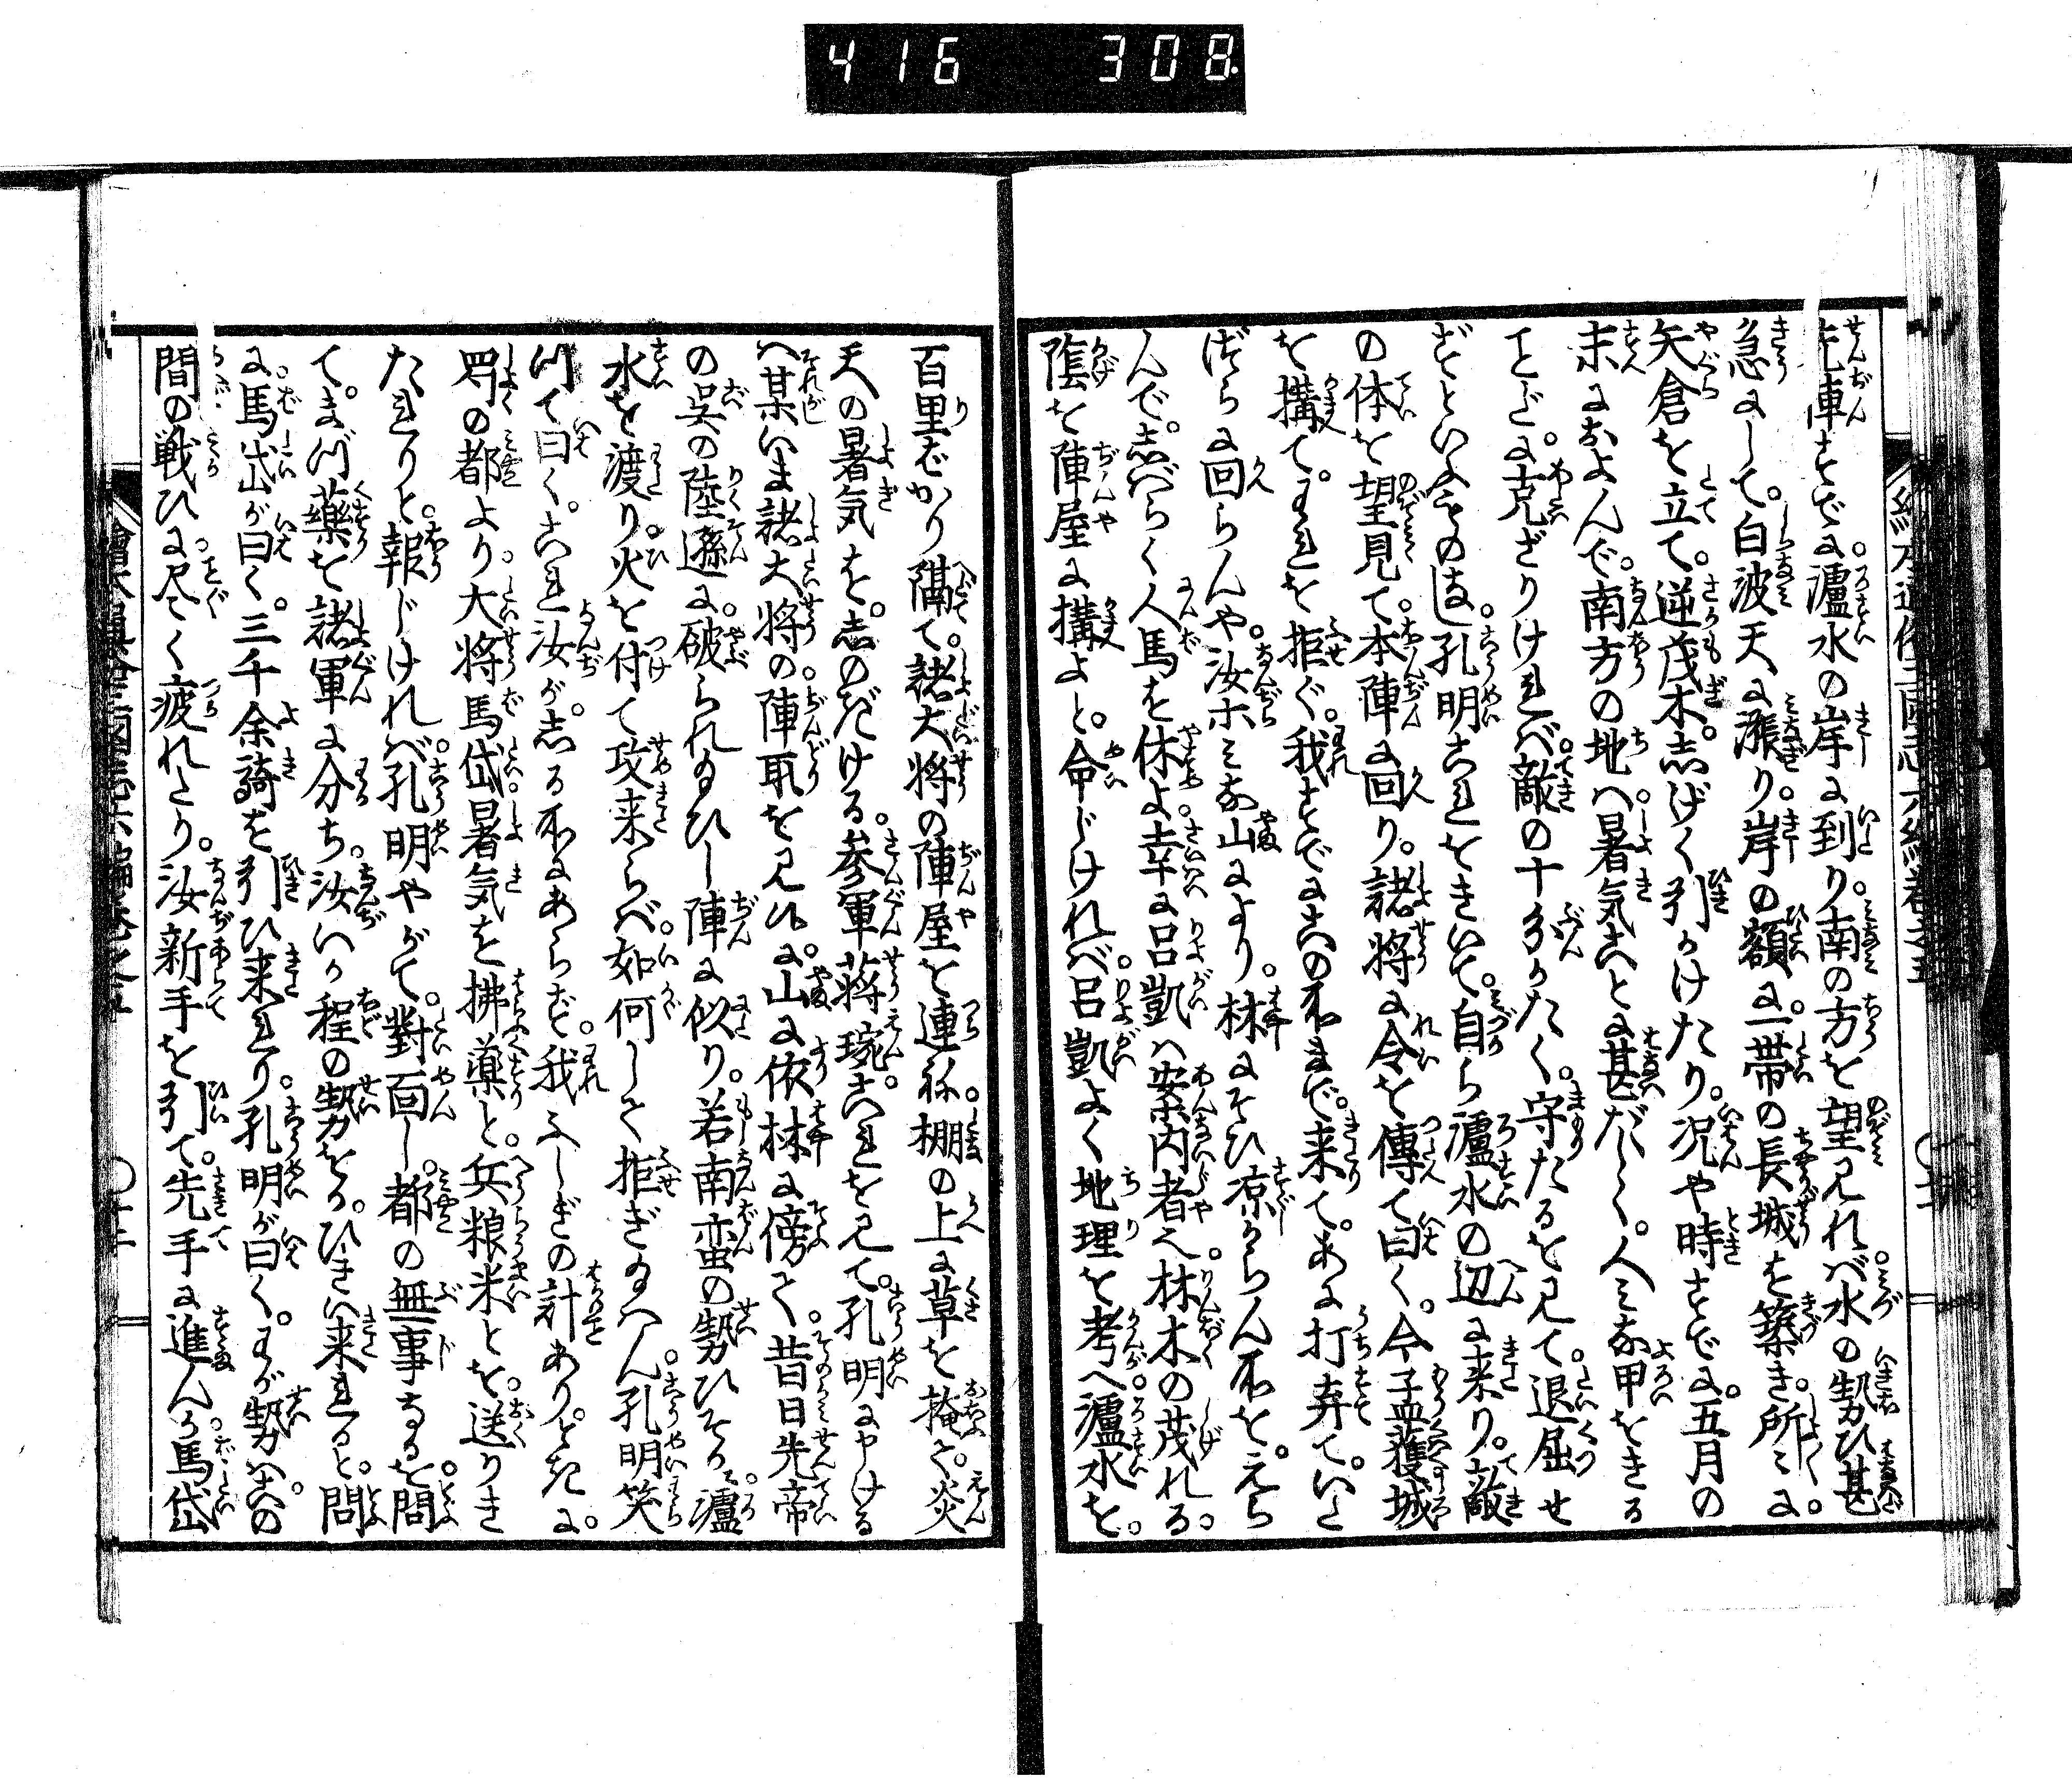 416 308
先陣すでに。瀘水の岸に到り。南の方を望見れば。水の勢ひ甚
急にして。白波天に漲り。岸の額に。一帯の長城を築き。所〻に。
矢倉を立て。逆茂木。志げく引かけたり。况や時すでに。五月の
末におよんで。南方の地ハ。暑気ことに甚だしく。人みな甲をきる
ことだに克ざりけれバ。敵の十分かたく。守たるを見て。退屈せ
ずといふものは。孔明これをきいて。自ら瀘水の辺に来り。敵
の体を望見て。本陣に回り。諸将に令を傳て曰く。今孟獲城
を構て。われを拒ぐ。我すでにこの所まで。来て。あに打弃て。いた
づらに回らんや。汝等みな山により。林にそひ凉からん所を。えら
んで。志ばらく人馬を休よ。幸に呂凱ハ案内者也。林木の茂れる。
蔭を陣屋に構よと。命じけれバ。呂凱よく地理を考へ瀘水を。
百里ばかり隔て。諸大将の陣屋を連ね。棚の上に草を掩て。炎
天の暑気を。志のぎける。参軍蒋琬。これを見て。孔明にやける
ハ某いま諸大将の。陣取を見候に。山に依林に傍て。昔日先帝
の呉の陸遜に。破られ給ひし陣に似り。若南蛮の勢ひそか。瀘
水を渡り。火を付て攻来らバ。如何して拒ぎ給ハん。孔明笑
川て曰く。これ汝が。志る所にあらず。我ふしぎの計ありと。時に。
蜀の都より。大将馬岱。暑気を拂薬と。兵粮米とを。送りき
たれりと。報じけれバ。孔明やがて。對面し。都の無事なるを。問
て。まづ薬を諸軍に分ち。汝いか程の勢をか。ひきい来れると。問
に。馬岱が曰く。三千余騎を引ひ来れり。孔明が曰く。わが勢ハ。この
間の戦ひに。尽く疲れたり。汝新手を引て。先手に進んか。馬岱